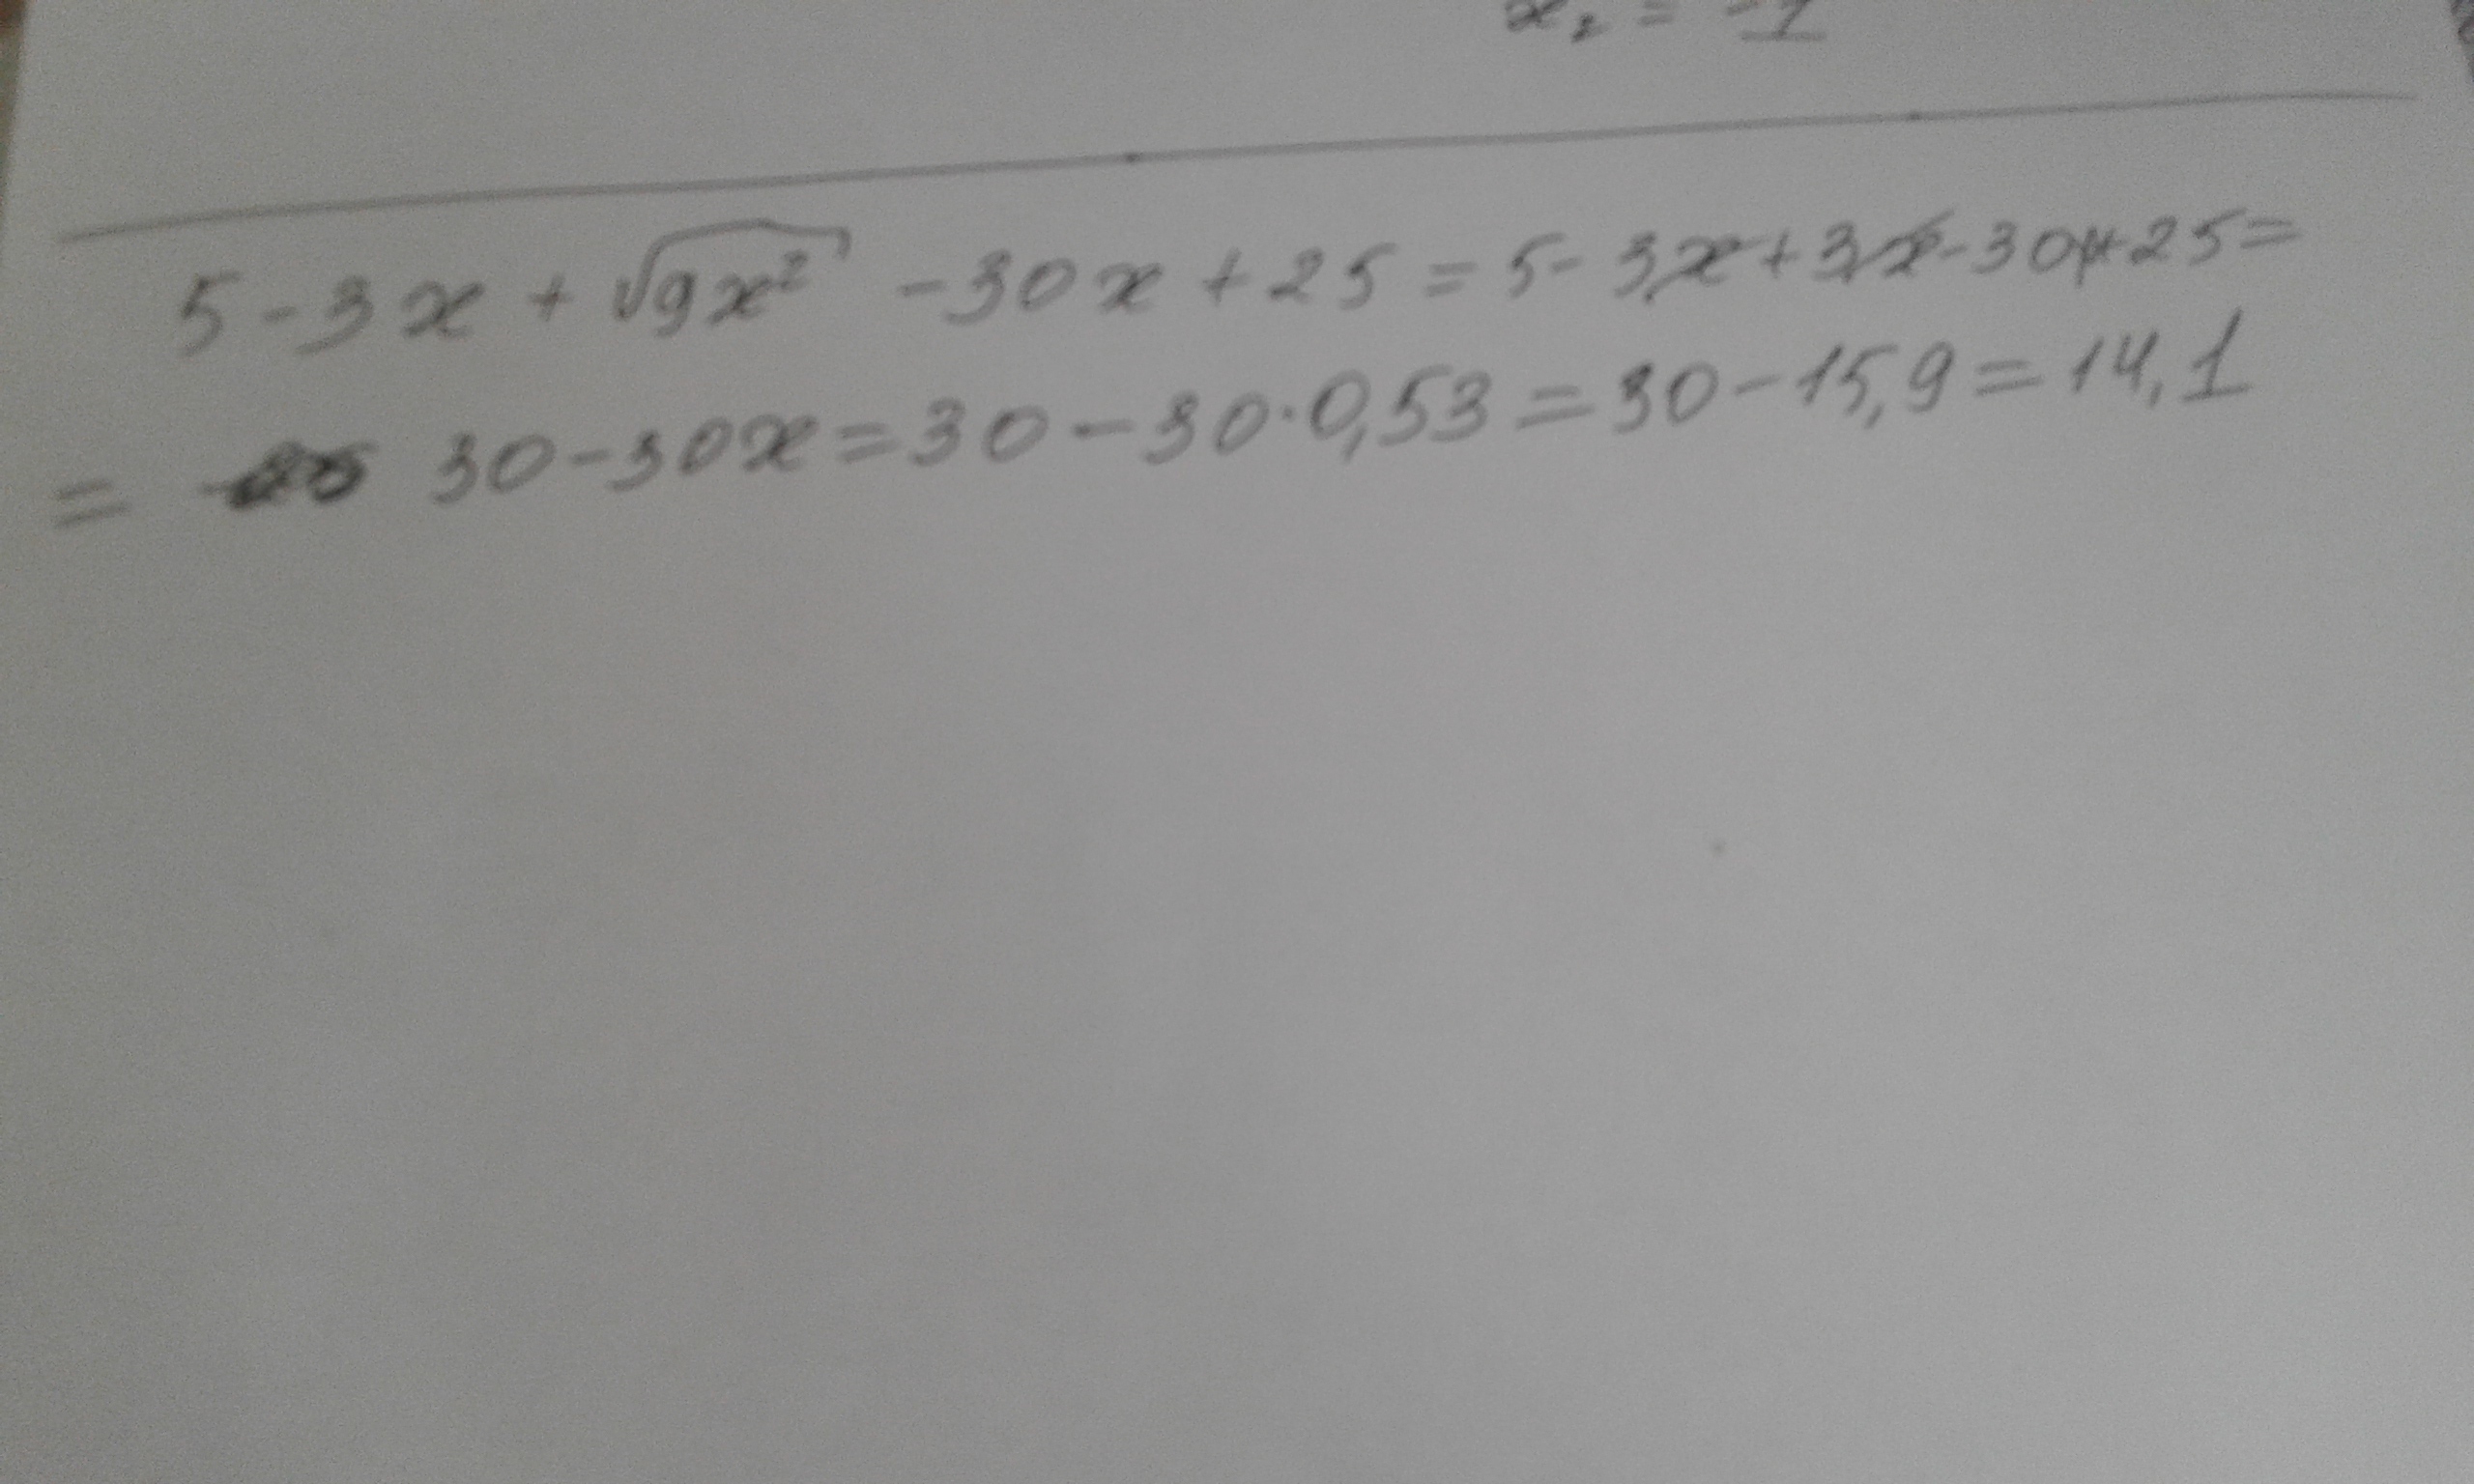 x₂ = -1
5 - 3x + √9x² - 30x + 25 = 5 - 3x + 3x - 30x + 25 =
= 30 - 30x = 30 - 30·0,53 = 30 - 15,9 = 14,1